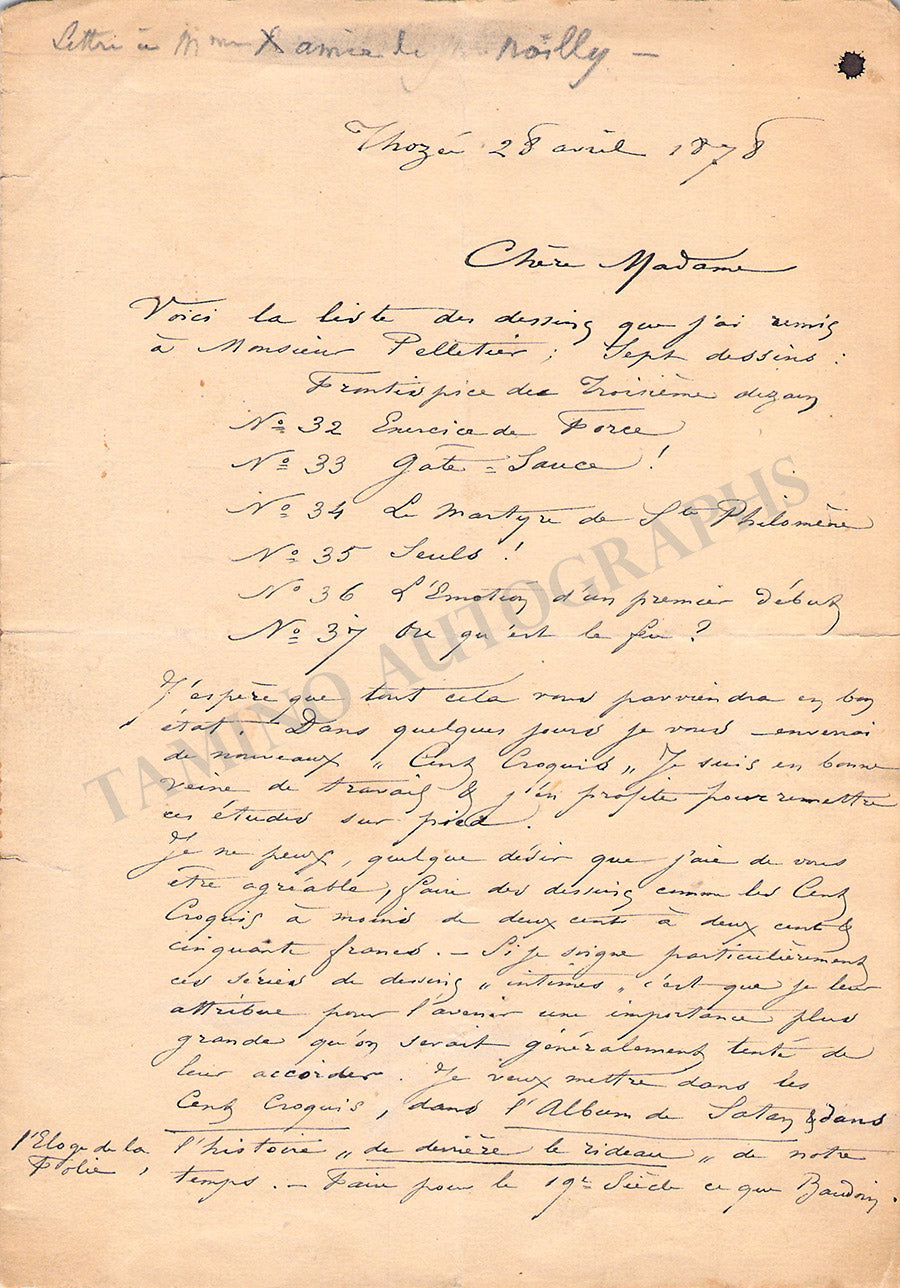 Lettre à Mme X amie de Noilly —
Thozée 28 avril 1878
Chère Madame
Voici la liste des dessins que j'ai remis
à Monsieur Pelletier ; Sept dessins :
Frontispice des Troisième dizain
No 32 Exercice de Force
No 33 Gâte = Sauce !
No 34 Le Martyre de Ste Philomène
No 35 Seuls !
No 36 L'Emotion d'un premier début
No 37 Ou qu'est le feu ?
J'espère que tout cela vous parviendra en bon
état. Dans quelques jours je vous enverrai
de nouveaux „ Cent Croquis „ Je suis en bonne
veine de travail & j'en profite pour remettre
ces études sur pied.
Je ne peux, quelque désir que j'aie de vous
être agréable, faire des dessins comme les Cent
Croquis à moins de deux cents à deux cent &
cinquante francs. — Si je soigne particulièrement
ces séries de dessins „ intimes „ c'est que je leur
attribue pour l'avenir une importance plus
grande qu'on serait généralement tenté de
leur accorder. Je veux mettre dans les
Cent Croquis, dans l'Album de Satan & dans
l'Eloge de la
Folie,
l'histoire „ de derrière le rideau „ de notre
temps. — Faire pour le 19e Siècle ce que Baudoin.
TAMINO AUTOGRAPHS